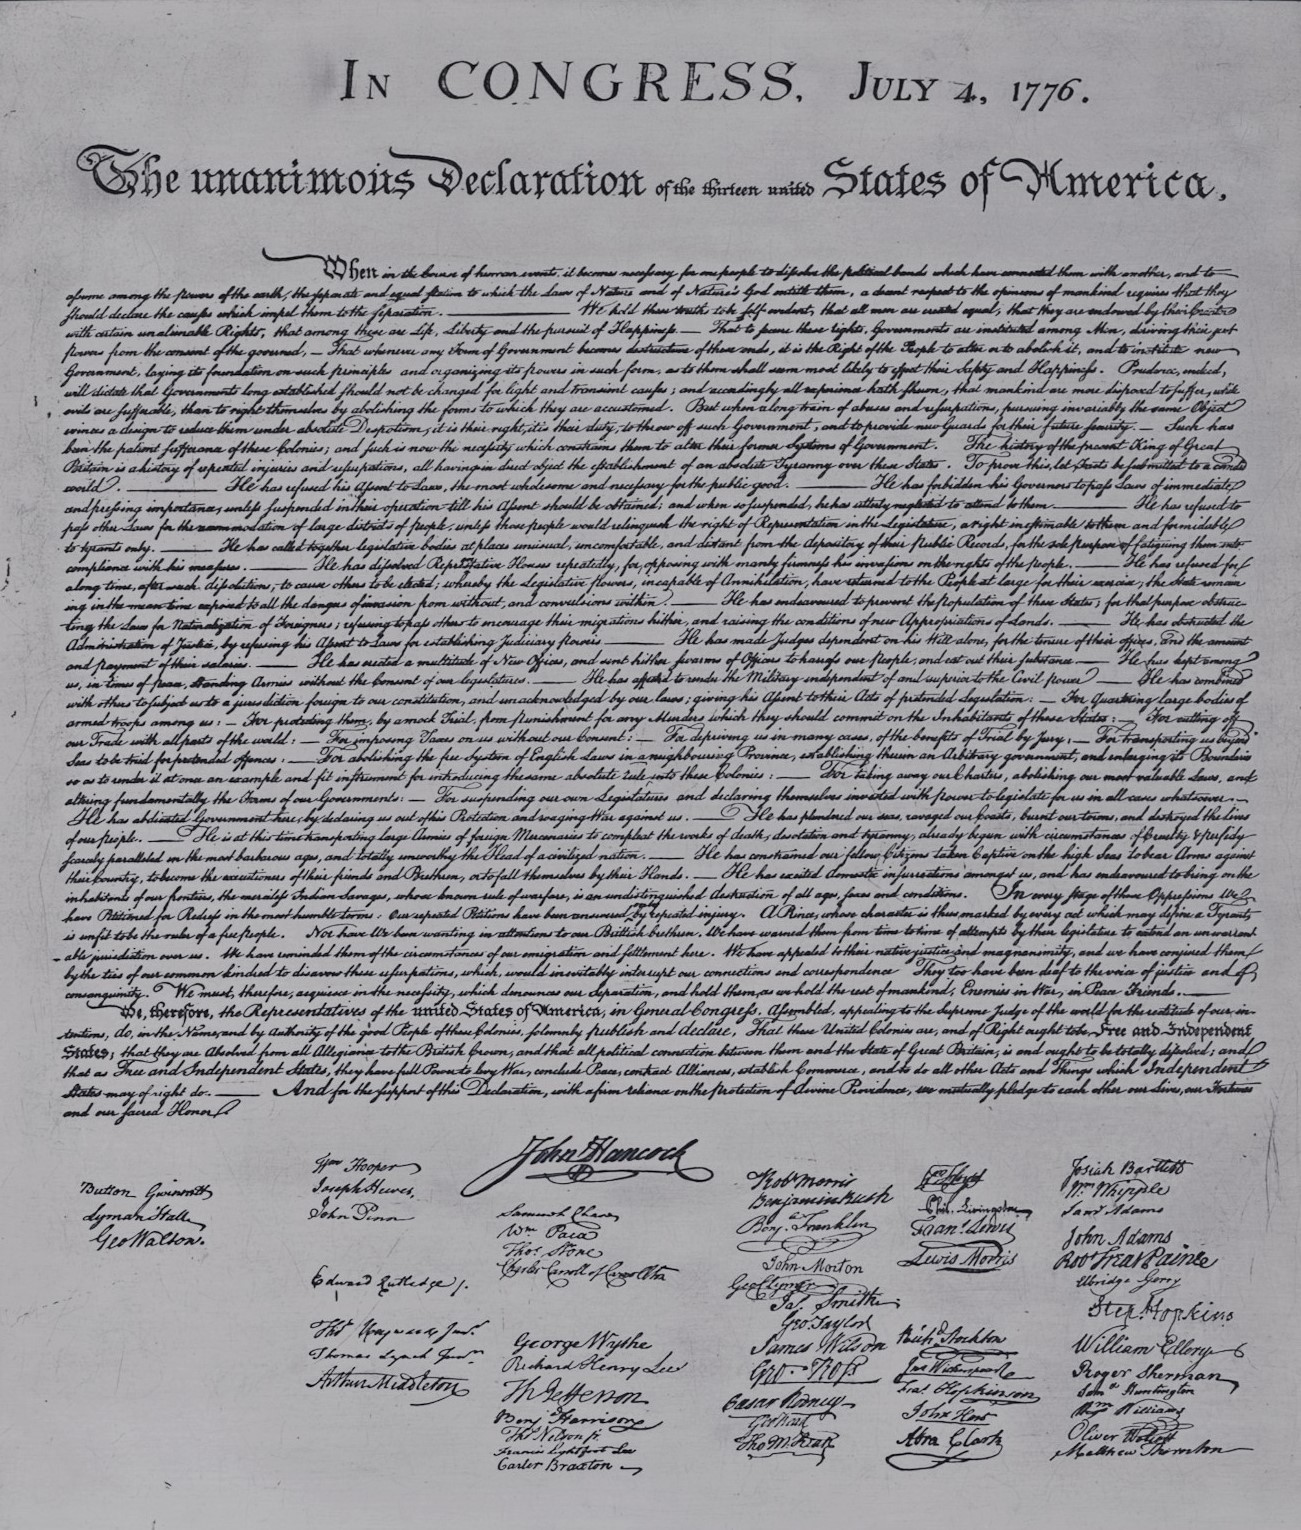 In CONGRESS, July 4, 1776.
The unanimous Declaration of the thirteen united States of America,
When in the Course of human events, it becomes necessary for one people to dissolve the political bands which have connected them with another, and to
assume among the powers of the earth, the separate and equal station to which the Laws of Nature and of Nature's God entitle them, a decent respect to the opinions of mankind requires that they
should declare the causes which impel them to the separation. — We hold these truths to be self-evident, that all men are created equal, that they are endowed by their Creator
with certain unalienable Rights, that among these are Life, Liberty and the pursuit of Happiness. — That to secure these rights, Governments are instituted among Men, deriving their just
powers from the consent of the governed, — That whenever any Form of Government becomes destructive of these ends, it is the Right of the People to alter or to abolish it, and to institute new
Government, laying its foundation on such principles and organizing its powers in such form, as to them shall seem most likely to effect their Safety and Happiness. Prudence, indeed,
will dictate that Governments long established should not be changed for light and transient causes; and accordingly all experience hath shewn, that mankind are more disposed to suffer, while
evils are sufferable, than to right themselves by abolishing the forms to which they are accustomed. But when a long train of abuses and usurpations, pursuing invariably the same Object
evinces a design to reduce them under absolute Despotism, it is their right, it is their duty, to throw off such Government, and to provide new Guards for their future security. — Such has
been the patient sufferance of these Colonies; and such is now the necessity which constrains them to alter their former Systems of Government. The history of the present King of Great
Britain is a history of repeated injuries and usurpations, all having in direct object the establishment of an absolute Tyranny over these States. To prove this, let Facts be submitted to a candid
world. — He has refused his Assent to Laws, the most wholesome and necessary for the public good. — He has forbidden his Governors to pass Laws of immediate
and pressing importance, unless suspended in their operation till his Assent should be obtained; and when so suspended, he has utterly neglected to attend to them. — He has refused to
pass other Laws for the accommodation of large districts of people, unless those people would relinquish the right of Representation in the Legislature, a right inestimable to them and formidable
to tyrants only. — He has called together legislative bodies at places unusual, uncomfortable, and distant from the depository of their Public Records, for the sole purpose of fatiguing them into
compliance with his measures. — He has dissolved Representative Houses repeatedly, for opposing with manly firmness his invasions on the rights of the people. — He has refused for
a long time, after such dissolutions, to cause others to be elected; whereby the Legislative powers, incapable of Annihilation, have returned to the People at large for their exercise; the State remain
ing in the mean time exposed to all the dangers of invasion from without, and convulsions within. — He has endeavoured to prevent the population of these States; for that purpose obstruc-
ting the Laws for Naturalization of Foreigners; refusing to pass others to encourage their migrations hither, and raising the conditions of new Appropriations of Lands. — He has obstructed the
Administration of Justice, by refusing his Assent to Laws for establishing Judiciary powers — He has made Judges dependent on his Will alone, for the tenure of their offices, and the amount
and payment of their salaries. — He has erected a multitude of New Offices, and sent hither swarms of Officers to harrass our people, and eat out their substance. — He has kept among
us, in times of peace, Standing Armies without the Consent of our legislatures. — He has affected to render the Military independent of and superior to the Civil power — He has combined
with others to subject us to a jurisdiction foreign to our constitution, and unacknowledged by our laws; giving his Assent to their Acts of pretended Legislation: — For Quartering large bodies of
armed troops among us: — For protecting them, by a mock Trial, from punishment for any Murders which they should commit on the Inhabitants of these States: — For cutting off
our Trade with all parts of the world: — For imposing Taxes on us without our Consent: — For depriving us in many cases, of the benefits of Trial by Jury: — For transporting us beyond
Seas to be tried for pretended offences: — For abolishing the free System of English Laws in a neighbouring Province, establishing therein an Arbitrary government, and enlarging its Boundaries
so as to render it at once an example and fit instrument for introducing the same absolute rule into these Colonies: — For taking away our Charters, abolishing our most valuable Laws, and
altering fundamentally the Forms of our Governments: — For suspending our own Legislatures and declaring themselves invested with power to legislate for us in all cases whatsoever. —
He has abdicated Government here, by declaring us out of his Protection and waging War against us. — He has plundered our seas, ravaged our Coasts, burnt our towns, and destroyed the lives
of our people. — He is at this time transporting large Armies of foreign Mercenaries to compleat the works of death, desolation and tyranny, already begun with circumstances of Cruelty & perfidy
scarcely paralleled in the most barbarous ages, and totally unworthy the Head of a civilized nation. — He has constrained our fellow Citizens taken Captive on the high Seas to bear Arms against
their Country, to become the executioners of their friends and Brethren, or to fall themselves by their Hands. — He has excited domestic insurrections amongst us, and has endeavoured to bring on the
inhabitants of our frontiers, the merciless Indian Savages, whose known rule of warfare, is an undistinguished destruction of all ages, sexes and conditions. In every stage of these Oppressions We
have Petitioned for Redress in the most humble terms: Our repeated Petitions have been answered only by repeated injury. A Prince, whose character is thus marked by every act which may define a Tyrant,
is unfit to be the ruler of a free people. Nor have We been wanting in attentions to our Brittish brethren. We have warned them from time to time of attempts by their legislature to extend an unwarrant
able jurisdiction over us. We have reminded them of the circumstances of our emigration and settlement here. We have appealed to their native justice and magnanimity, and we have conjured them
by the ties of our common kindred to disavow these usurpations, which, would inevitably interrupt our connections and correspondence They too have been deaf to the voice of justice and of
consanguinity. We must, therefore, acquiesce in the necessity, which denounces our Separation, and hold them, as we hold the rest of mankind, Enemies in War, in Peace Friends. —
We, therefore, the Representatives of the united States of America, in General Congress, Assembled, appealing to the Supreme Judge of the world for the rectitude of our in-
tentions, do, in the Name, and by Authority of the good People of these Colonies, solemnly publish and declare, That these United Colonies are, and of Right ought to be Free and Independent
States; that they are Absolved from all Allegiance to the British Crown, and that all political connection between them and the State of Great Britain, is and ought to be totally dissolved; and
that as Free and Independent States, they have full Power to levy War, conclude Peace, contract Alliances, establish Commerce, and to do all other Acts and Things which Independent
States may of right do. — And for the support of this Declaration, with a firm reliance on the protection of divine Providence, we mutually pledge to each other our Lives, our Fortunes
and our sacred Honor.
Button Gwinnett
Lyman Hall
Geo Walton.
Wm Hooper
Joseph Hewes,
John Penn
Edward Rutledge /.
Thos Heyward Junr.
Thomas Lynch Junr.
Arthur Middleton
John Hancock
Samuel Chase
Wm. Paca
Thos. Stone
Charles Carroll of Carrollton
George Wythe
Richard Henry Lee
Th Jefferson
Benj Harrison
Thos Nelson jr.
Francis Lightfoot Lee
Carter Braxton
Robt Morris
Benjamin Rush
Benja. Franklin
John Morton
Geo Clymer
Jas. Smith
Geo. Taylor
James Wilson
Geo. Ross
Caesar Rodney
Geo Read
Tho M:Kean
Wm Floyd
Phil. Livingston
Frans. Lewis
Lewis Morris
Richd. Stockton
Jno Witherspoon
Fras. Hopkinson
John Hart
Abra Clark
Josiah Bartlett
Wm. Whipple
Saml Adams
John Adams
Robt Treat Paine
Elbridge Gerry
Step. Hopkins
William Ellery
Roger Sherman
Saml Huntington
Wm. Williams
Oliver Wolcott
Matthew Thornton